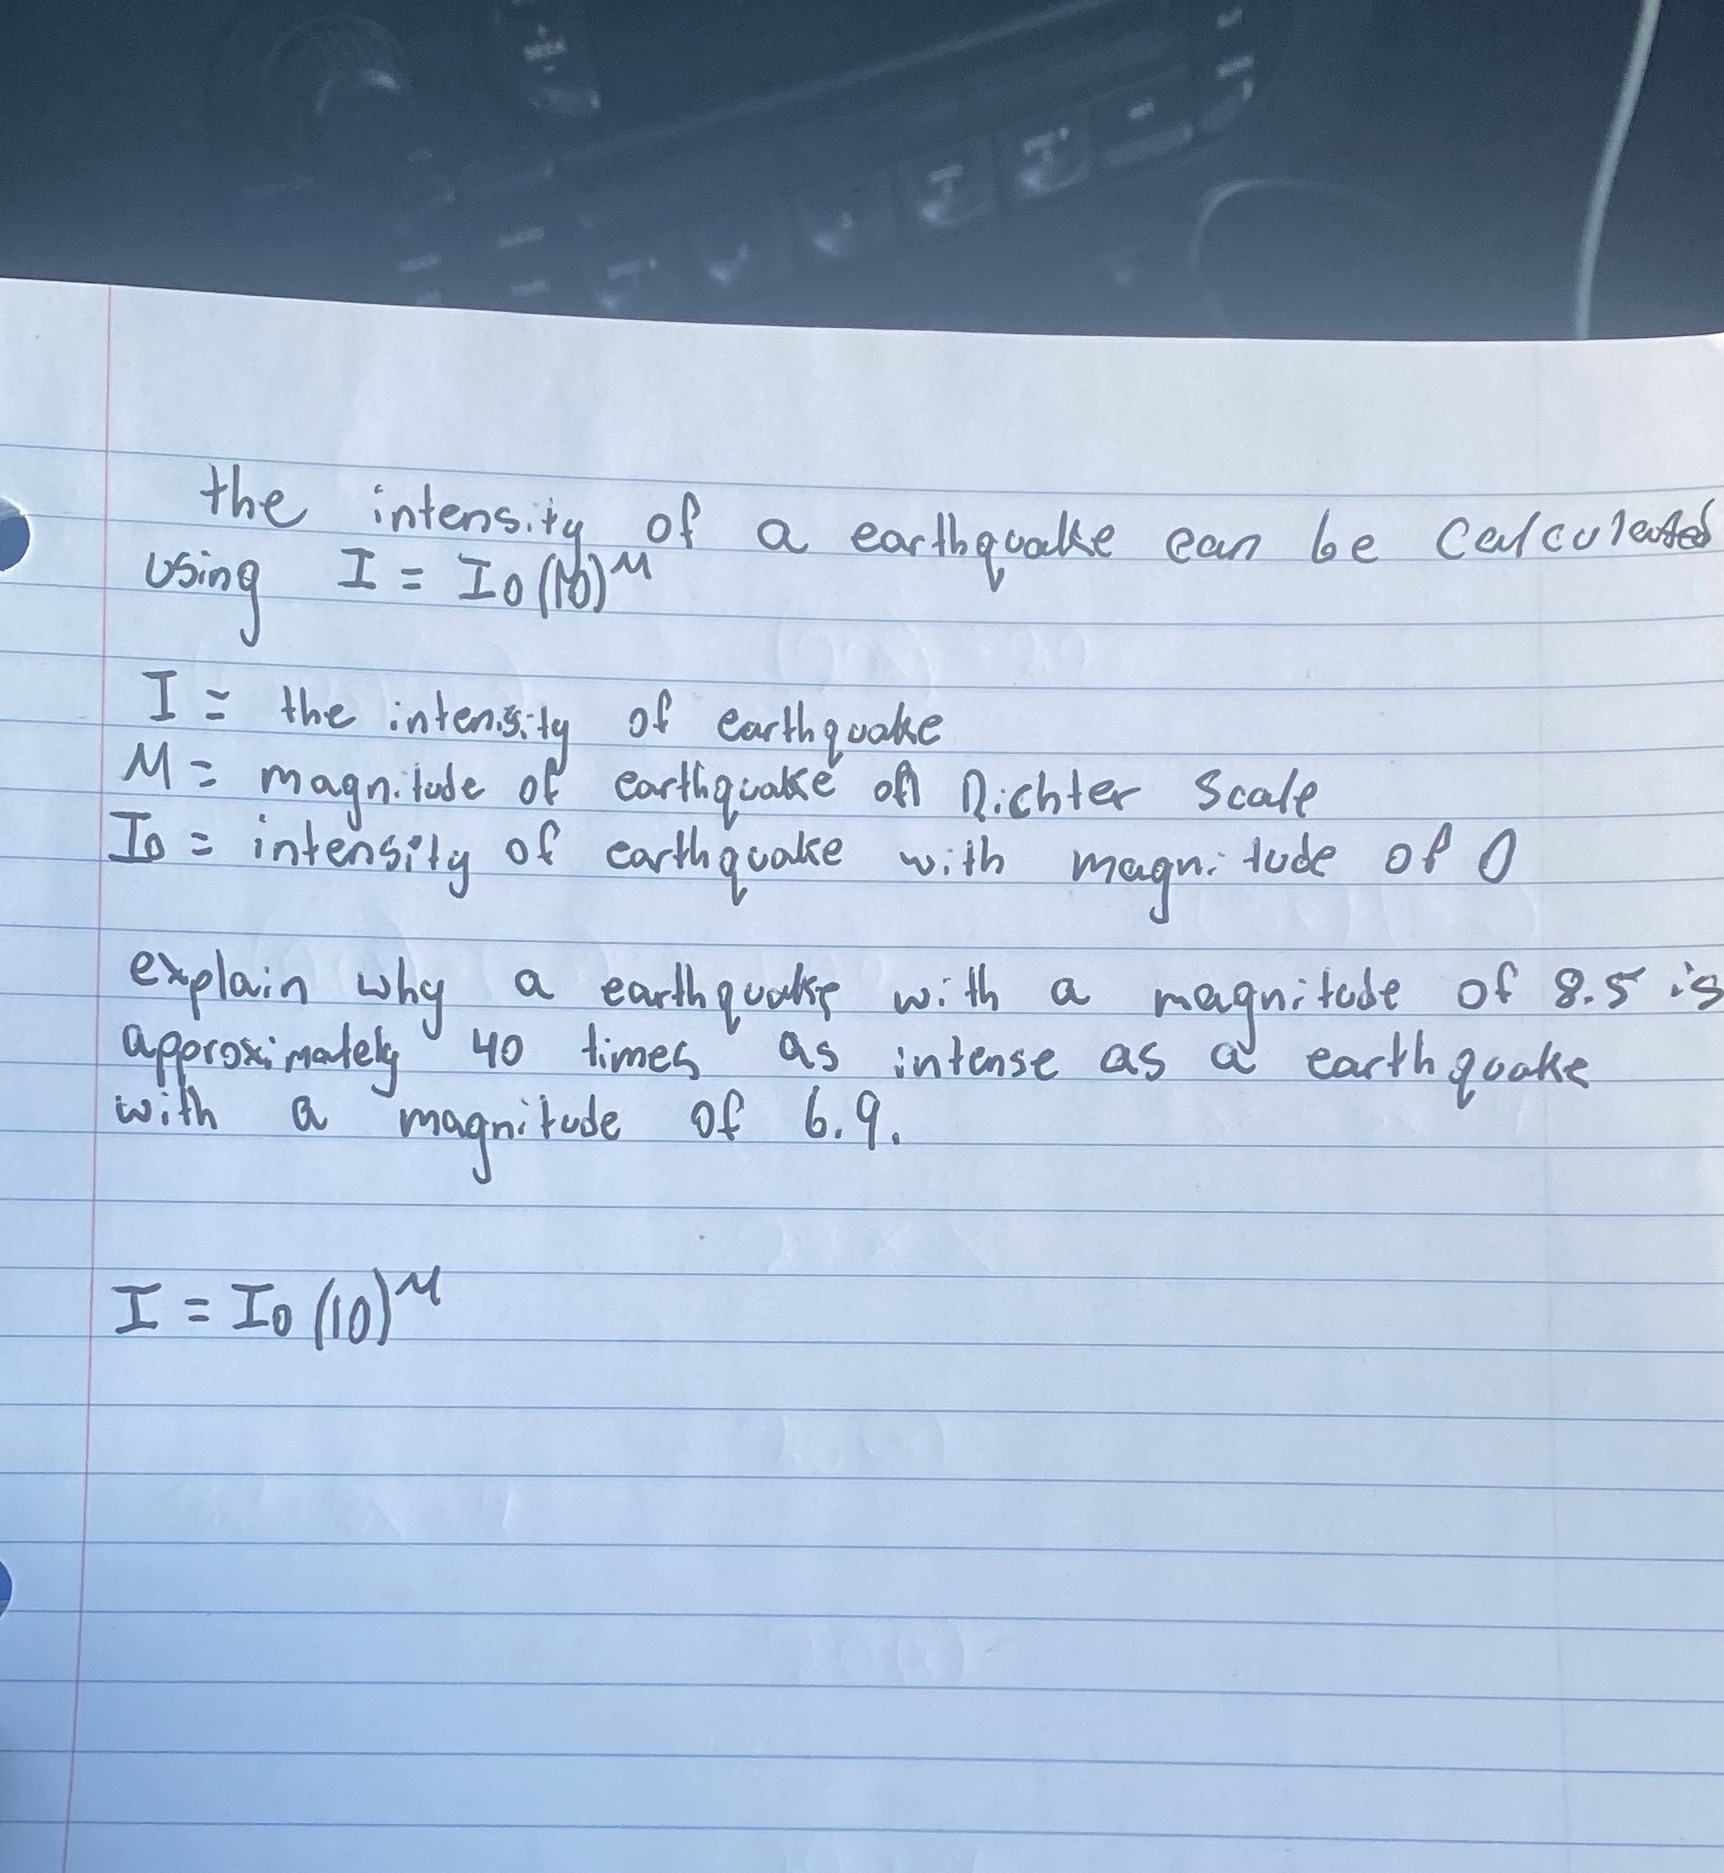 the intensity of a earthquake can be calculated
using I = I₀(10)ᴹ
I = the intensity of earthquake
M = magnitude of earthquake on Richter Scale
I₀ = intensity of earthquake with magnitude of 0
explain why a earthquake with a magnitude of 8.5 is
approximately 40 times as intense as a earthquake
with a magnitude of 6.9.
I = I₀ (10)ᴹ